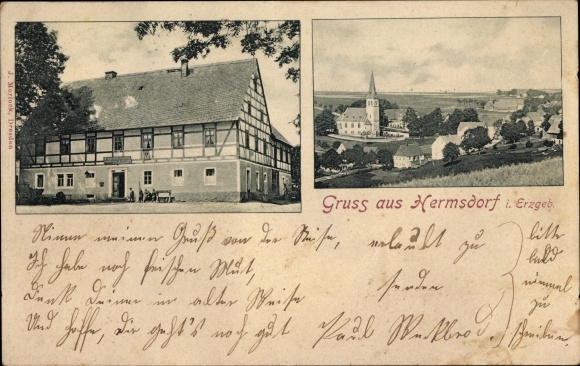 J. Martinek, Dresden
Gruss aus Hermsdorf i. Erzgeb.
Nimm meinen Gruß von der Reise,
Ich habe noch frischen Mut,
Denk Deiner in alter Weise
Und hoffe, Dir geht's noch gut
erlaubt zu
senden
Paul
bitte
bald
einmal
zu
schreiben